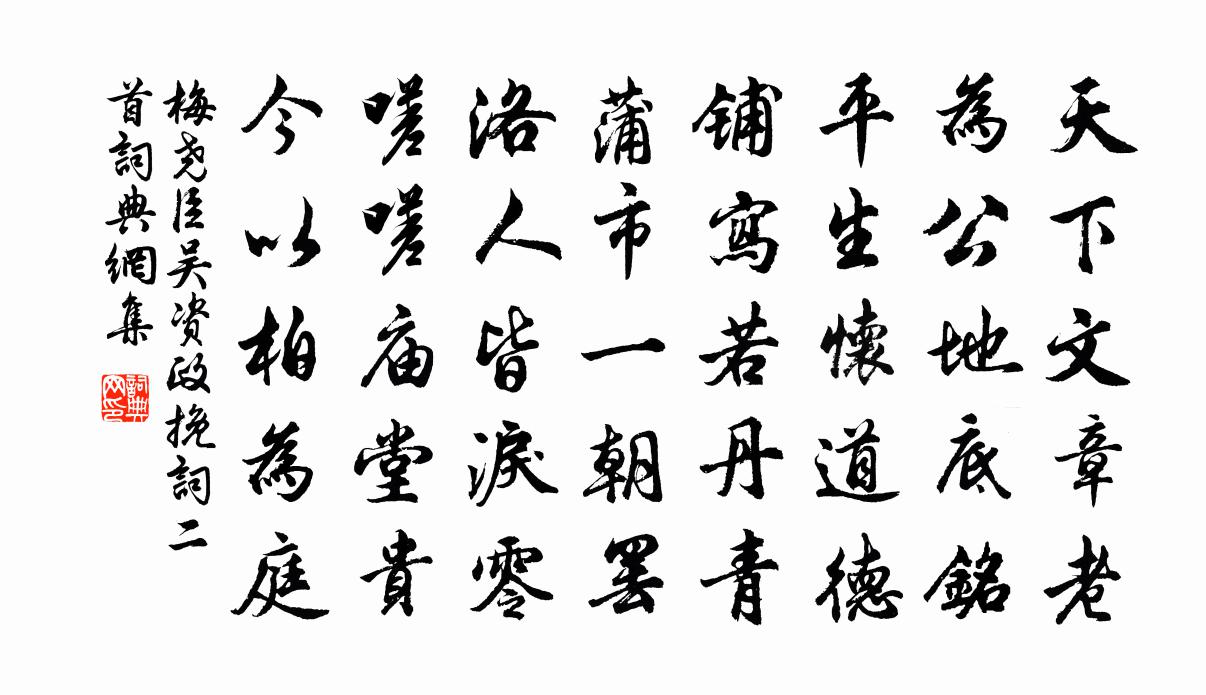 天下文章老
為公地底銘
平生懷道德
鋪寫若丹青
蒲市一朝罷
洛人皆淚零
嗟嗟庙堂貴
今以柏為庭
梅尧臣吴资政挽詞二
首詞典網集
詞典网印